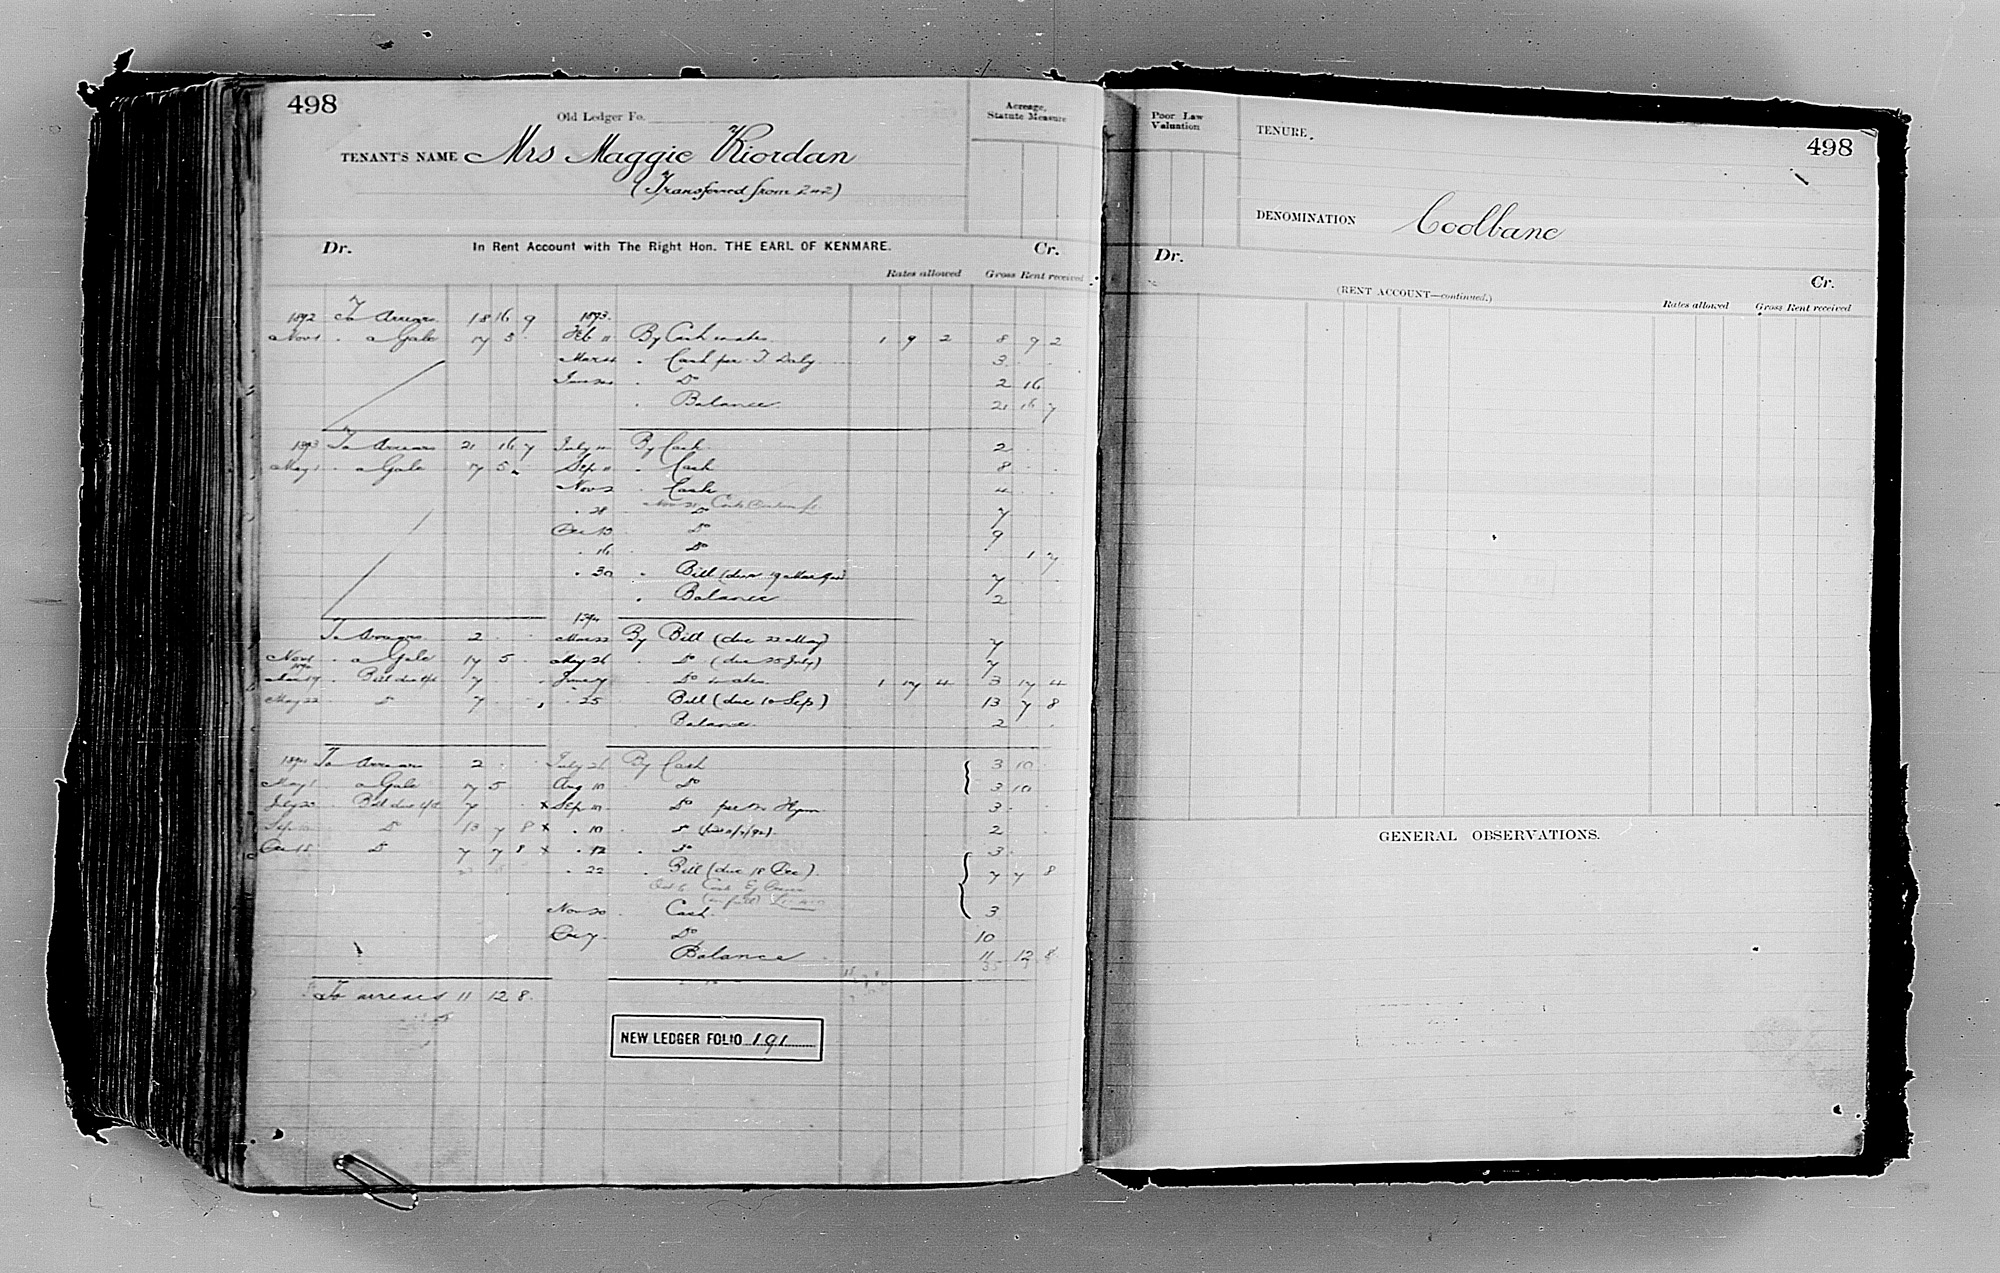 498
Old Ledger Fo.
Acreage, Statute Measure
TENANT'S NAME Mrs Maggie Riordan
(Transferred from 242)
Dr. In Rent Account with The Right Hon. THE EARL OF KENMARE. Cr.
Rates allowed Gross Rent received
1892 To Arrears 18 16 9 1893
Nov 1 . a Gale 17 5 . Feb 11 By Cash & rates 1 9 2 8 9 2
Mar . Cash per T. Daly 3 . .
June . Do 2 16
. Balance 21 16 7
1893 To Arrears 21 16 7 July By Cash 2 . .
May 1 . a Gale 17 5 . Sep 11 . Cash 8 . .
Nov 2 . Cash 4 . .
. 28 Do 7
Dec 13 Do 9
. 16 Do 1 7
. 30 . Bill (due 19 Mar) 7 . .
. Balance 2
1894
To Arrears 2 . . Mar 22 By Bill (due 22 May) 7
Nov 1 . a Gale 17 5 . May 26 . Do (due 25 July) 7
Bill due 7 . . June 7 Do & rates 1 17 4 3 17 4
May 22 Do 7 . 25 Bill (due 10 Sep) 13 7 8
. Balance 2 .
1894 To Arrears 2 . . July 26 By Cash 3 10
May 1 a Gale 17 5 Aug 10 Do 3 10
July 25 Bill due 7 . x Sep 10 Do per 3 .
Sep 10 Do 13 7 8 x . 10 . Do 2 .
Dec 18 Do 7 7 8 x . 12 . Do 3 .
. 22 . Bill (due 18 Dec) 7 7 8
Nov 20 . Cash 3
Dec 7 Do 10
Balance 11 12 8
To arrears 11 12 8
NEW LEDGER FOLIO 191
Poor Law Valuation
TENURE.
498
DENOMINATION Coolbane
Dr. Cr.
(RENT ACCOUNT—continued.)
Rates allowed Gross Rent received
GENERAL OBSERVATIONS.